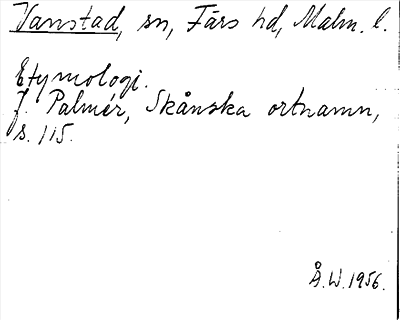 Vanstad, sn, Färs hd, Malm. l.
Etymologi.
J. Palmér, Skånska ortnamn,
s. 115.
Å.W. 1956.